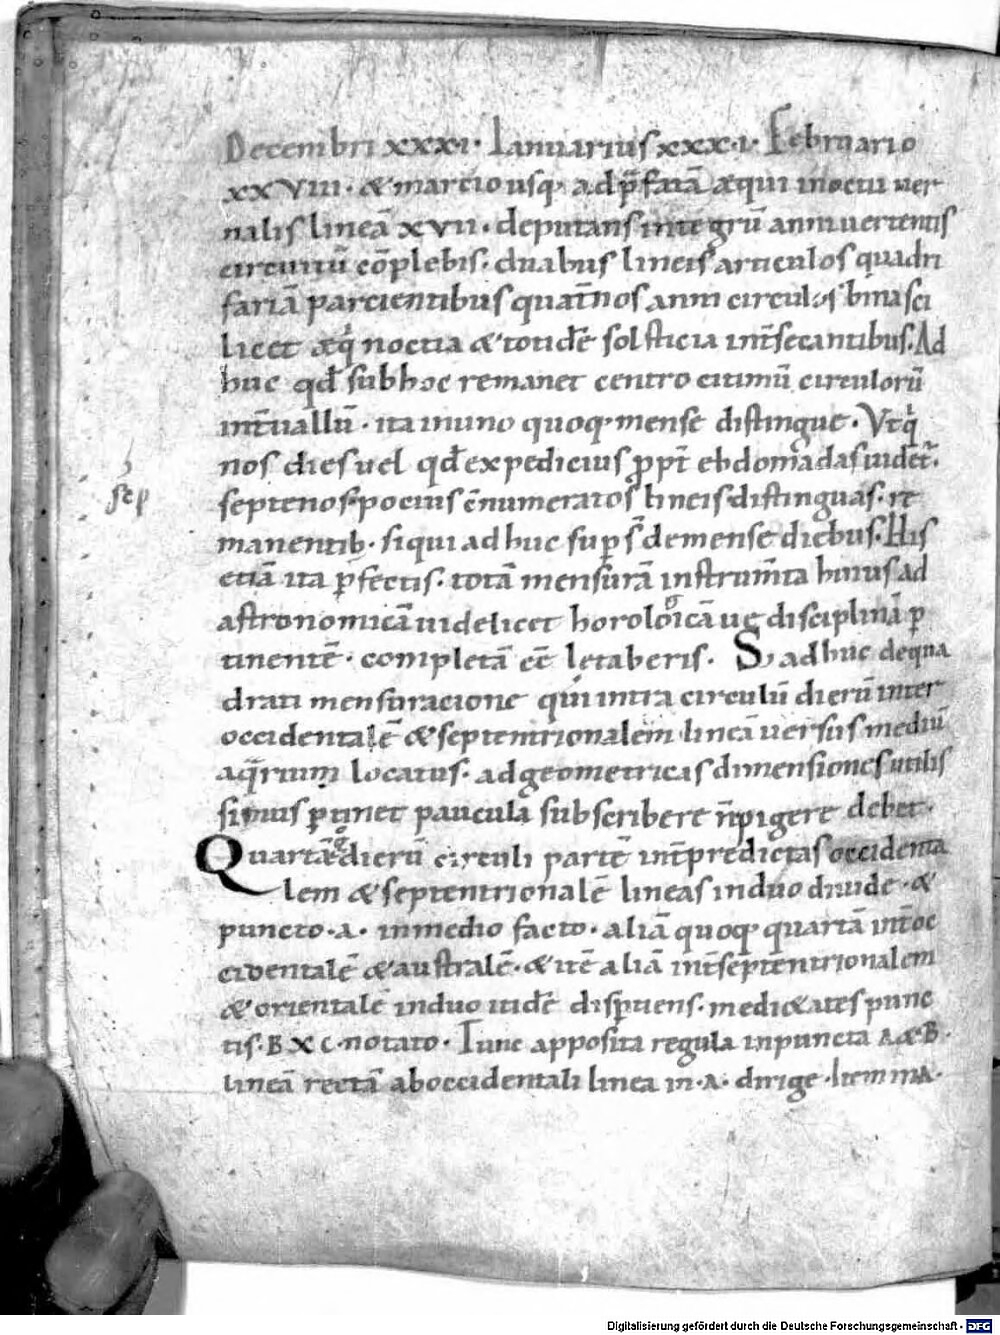 Decembri xxxi· Ianuarius xxx·i· Februario
xxviii· & marcio usq; ad p̄fatā æquinoctii uer
nalis lineā xvii· deputans integrū anni uertentis
circuitū cōplebis· duabus lineis articulos quadri
fariā parcientibus quat̄nos anni circulos bina sci
licet æq noctia & totidē solsticia int̄secantibus· Ad
huc qđ sub hoc remanet centro citimū circulorū
int̄uallū· ita in uno quoq; mense distingue· Vt q
nos dies uel qđ expedicius p̱pt̄ ebdomadas uidet̄·
sep
septenos pocius c̄numeratos lineis distinguas· re
manentib· si qui adhuc sup̱ s̄ de mense diebus· His
etiā ita p̱fectis· totā mensurā instrum̄ta huius ad
astronomicā uidelicet horoloicā ue disciplinā p̱
g
tinentē· completā eē lętaberis· Si adhuc de qua
drati mensuracione qui intra circulū dierū inter
occidentalē & septemtrionalem lineā uersus mediū
aq̄rium locatus· ad geometricas dimensiones utilis
simus p̱tinet paucula subscribere n̄ pigere debet·
Quartā dierū circuli partē int̄ predictas occidenta
lem & septentrionalē lineas in duo diuide· &
puncto· A· in medio facto· aliā quoq; quartā int̄ oc
cidentalē & australē· & itē aliā int̄ septentrionalem
& orientalē in duo itidē disp̱tiens· medi&ates punc
tis· B & C· notato· Tunc apposita regula in puncta A & B·
lineā rectā ab occidentali linea in· A· dirige·